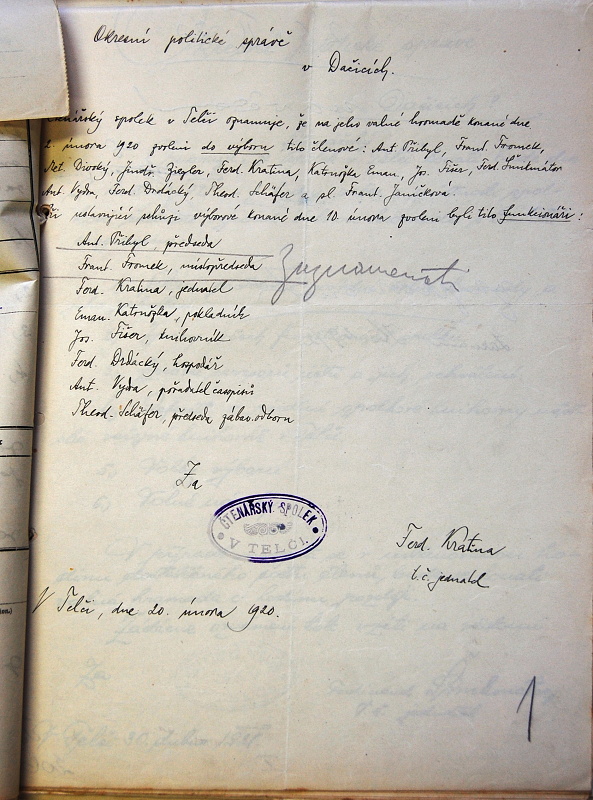 Okresní politické správě
v Dačicích.
Čtenářský spolek v Telči oznamuje, že na jeho valné hromadě konané dne
2. února 1920 zvoleni do výboru tito členové: Ant. Přibyl, Frant. Fromek,
Met. Divoký, Jindř. Ziegler, Ferd. Kratina, Katoňožka Eman, Jos. Fišer, Ferd.
Ant. Vydra, Ferd. Drdácký, Theod. Schäfer a sl. Frant. Janíčková.
Při ustavující schůzi výborové konané dne 10. února zvoleni byli tito funkcionáři:
Ant. Přibyl, předseda
Frant. Fromek, místopředseda
Ferd. Kratina, jednatel
Eman. Katoňožka, pokladník
Jos. Fišer, knihovník
Ferd. Drdácký, hospodář
Ant. Vydra, pořadatel časopisů
Theod. Schäfer, předseda zábav. odboru
Za
ČTENÁŘSKÝ SPOLEK
V TELČI.
Ferd. Kratina
t. č. jednatel
V Telči, dne 20. února 1920.
1